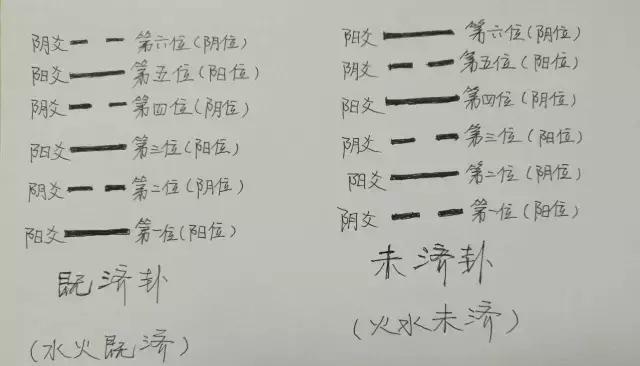 阴爻 第六位(阴位)
阳爻 第五位(阳位)
阴爻 第四位(阴位)
阳爻 第三位(阳位)
阴爻 第二位(阴位)
阳爻 第一位(阳位)
既济卦
(水火既济)
阳爻 第六位(阴位)
阴爻 第五位(阳位)
阳爻 第四位(阴位)
阴爻 第三位(阳位)
阳爻 第二位(阴位)
阴爻 第一位(阳位)
未济卦
(火水未济)